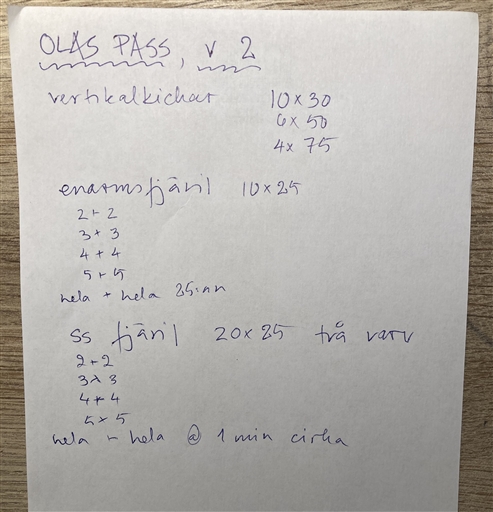 OLAS PASS, v 2
vertikalkickar 10x30
6x50
4x75
enarmsfjäril 10x25
2+2
3+3
4+4
5+5
hela + hela 25:an
ss fjäril 20x25 två varv
2+2
3+3
4+4
5+5
hela + hela @ 1 min cirka